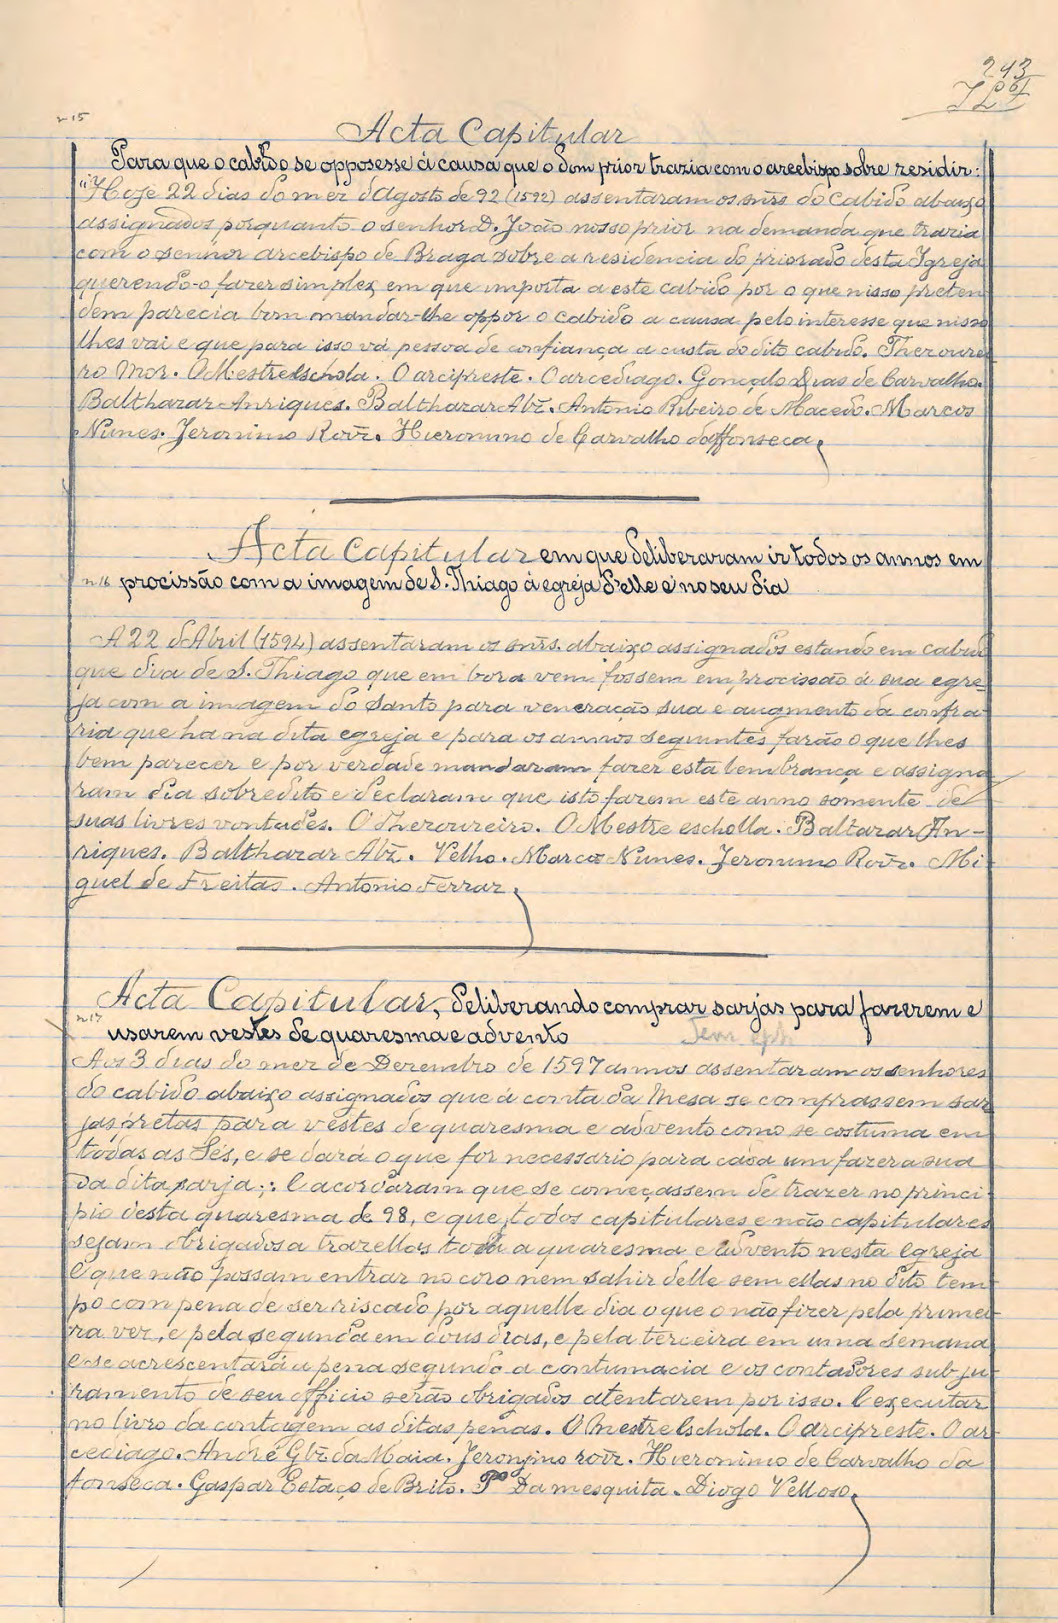 243
nº 15
Acta Capitular
Para que o cabido se oppozesse á causa que o dom prior trazia com o arcebispo sobre residir:
"Hoje 22 dias do mez d'Agosto de 92 (1592) assentaram os snr̃s do Cabido abaixo
assignados porquanto o senhor D. João nosso prior na demanda que trazia
com o senhor arcebispo de Braga sobre a residencia do priorado desta Igreja
querendo-o fazer simplex em que importa a este cabido por o que nisso preten
dem parecia bem mandar-lhe oppor o cabido a causa pelo interesse que nisso
lhes vai e que para isso vá pessoa de confiança a custa do dito cabido. Thezourei
ro Mor. O Mestreschola. O arcipreste. O arcediago. Gonçalo Dias de Carvalho.
Balthazar Anriques. Balthazar Abz̃. Antonio Ribeiro de Macedo. Marcos
Nunes. Jeronimo Roiz̃. Hieronimo de Carvalho daffonseca.
Acta Capitular em que deliberaram ir todos os annos em
nº 16 procissão com a imagem de S. Thiago á egreja d'elle e no seu dia
A 22 d'Abril (1594) assentaram os snr̃s. abaixo assignados estando em cabido
que dia de S. Thiago que em bora vem fossem em procissão á sua egre-
ja com a imagem do Santo para veneração sua e augmento da confra-
ria que ha na dita egreja e para os annos seguintes farão o que lhes
bem parecer e por verdade mandaram fazer esta lembrança e assigna
ram dia sobredito e declaram que isto fazem este anno somente de
suas livres vontades. O Thezoureiro. O Mestre escholla. Baltazar An-
riques. Balthazar Abz̃. Velho. Marcos Nunes. Jeronimo Roiz̃. Mi
guel de Freitas. Antonio Ferraz.
Acta Capitular, deliberando comprar sarjas para fazerem e
nº 17
usarem vestes de quaresma e advento
Aos 3 dias do mez de Dezembro de 1597 annos assentaram os senhores
do cabido abaixo assignados que á conta da Mesa se comprassem sar
jas pretas para vestes de quaresma e advento como se costuma em
todas as Sés, e se dará o que for necessario para cada um fazer a sua
da dita sarja; E acordaram que se começassem de trazer no princi
pio desta quaresma de 98, e que todos capitulares e não capitulares
sejam obrigados a trazellas toda a quaresma e advento nesta Egreja
E que não possam entrar no coro nem sahir delle sem ellas no dito tem
po com pena de ser riscado por aquelle dia o que o não fizer pela primei
ra vez, e pela segunda em dous dias, e pela terceira em uma semana
e se acrescentará a pena segundo a contumacia e os contadores sub ju
ramento de seu officio serão obrigados atentarem por isso. E executar
no livro da contagem as ditas penas. O Mestre Eschola. O arcipreste. O ar
cediago. André Glz̃ da Maia. Jeronjmo roiz̃. Hieronimo de Carvalho da
fonseca. Gaspar Estaço de Brito. Pº Da mesquita. Diogo Velloso.